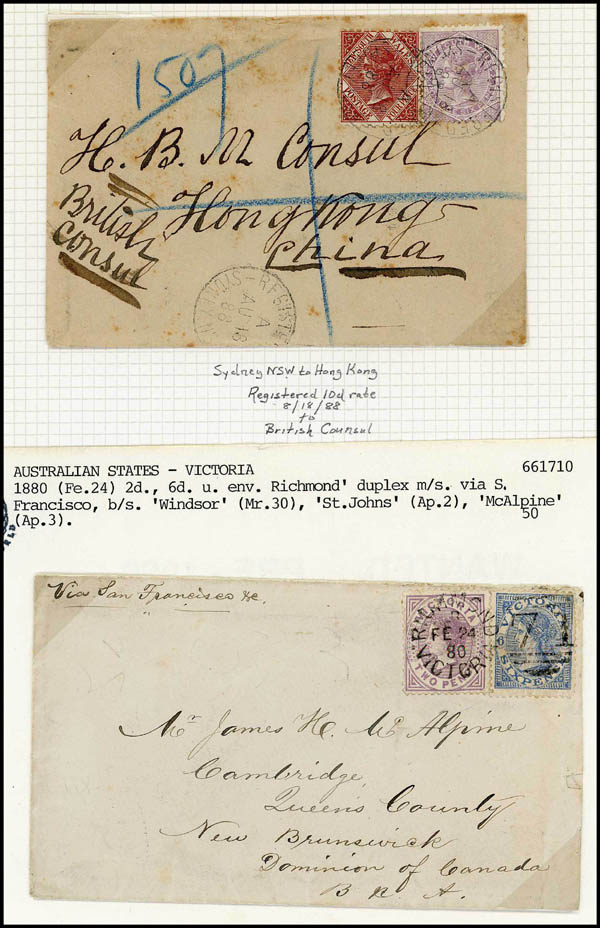 1507
H. B. M Consul
Hong Kong
China
British
Consul
REGISTERED
SYDNEY
A
AU 18
88
Sydney NSW to Hong Kong
Registered 10d rate
8/18/88
to
British Counsul
AUSTRALIAN STATES - VICTORIA 661710
1880 (Fe.24) 2d., 6d. u. env. Richmond' duplex m/s. via S.
Francisco, b/s. 'Windsor' (Mr.30), 'St.Johns' (Ap.2), 'McAlpine'
(Ap.3). 50
Via San Francisco &c.
VICTORIA
TWO PENCE
RICHMOND
FE 24
80
VICTORIA
VICTORIA
SIXPENCE
Mr James H. Mc Alpine
Cambridge
Queens County
New Brunswick
Dominion of Canada
B. N. A.